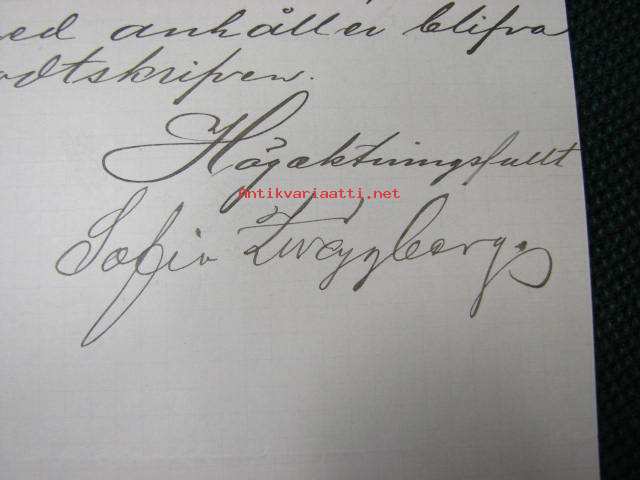 med anhåller blifva
godtskrifven.
Högaktningsfullt
Antikvariaatti.net
Sofia Zweygberg